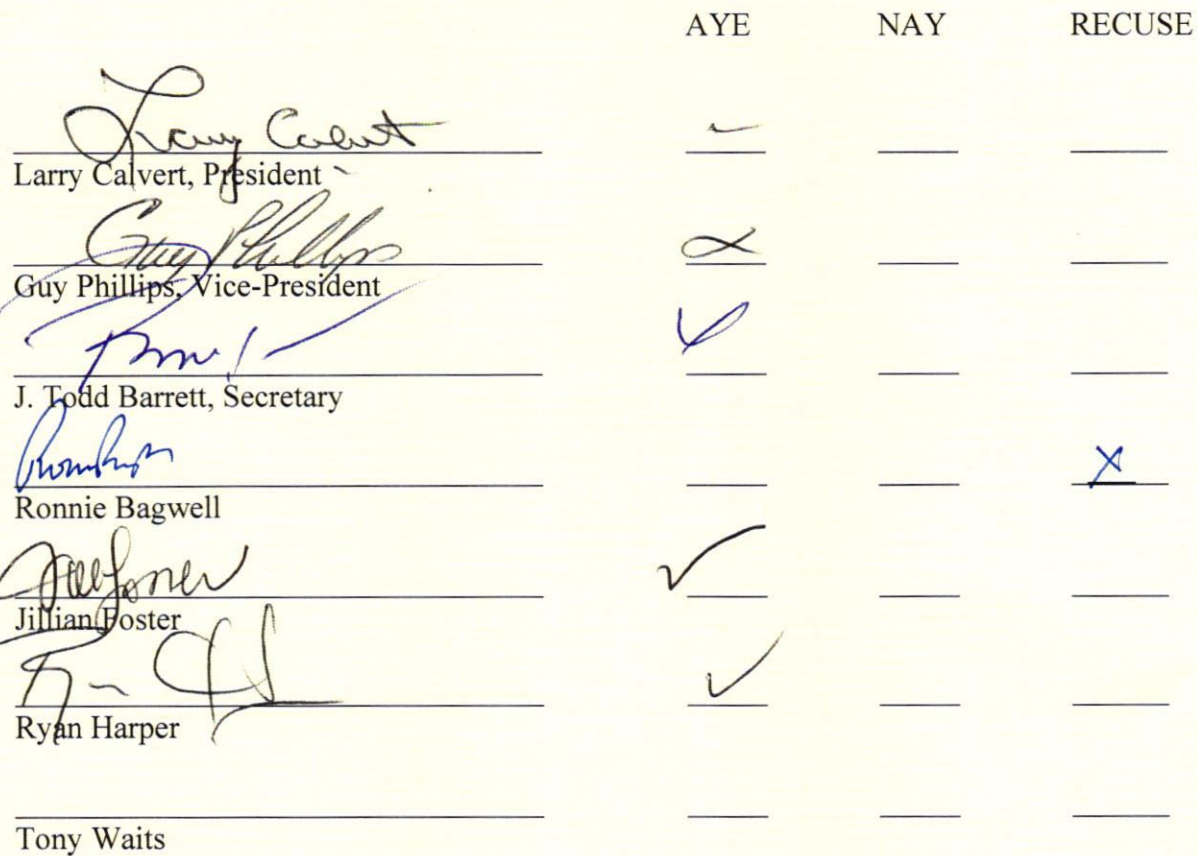 AYE NAY RECUSE
Larry Calvert
Larry Calvert, President
Guy Phillips
Guy Phillips, Vice-President
J. Todd Barrett, Secretary
X
Ronnie Bagwell
Jillian Foster
Ryan Harper
Tony Waits